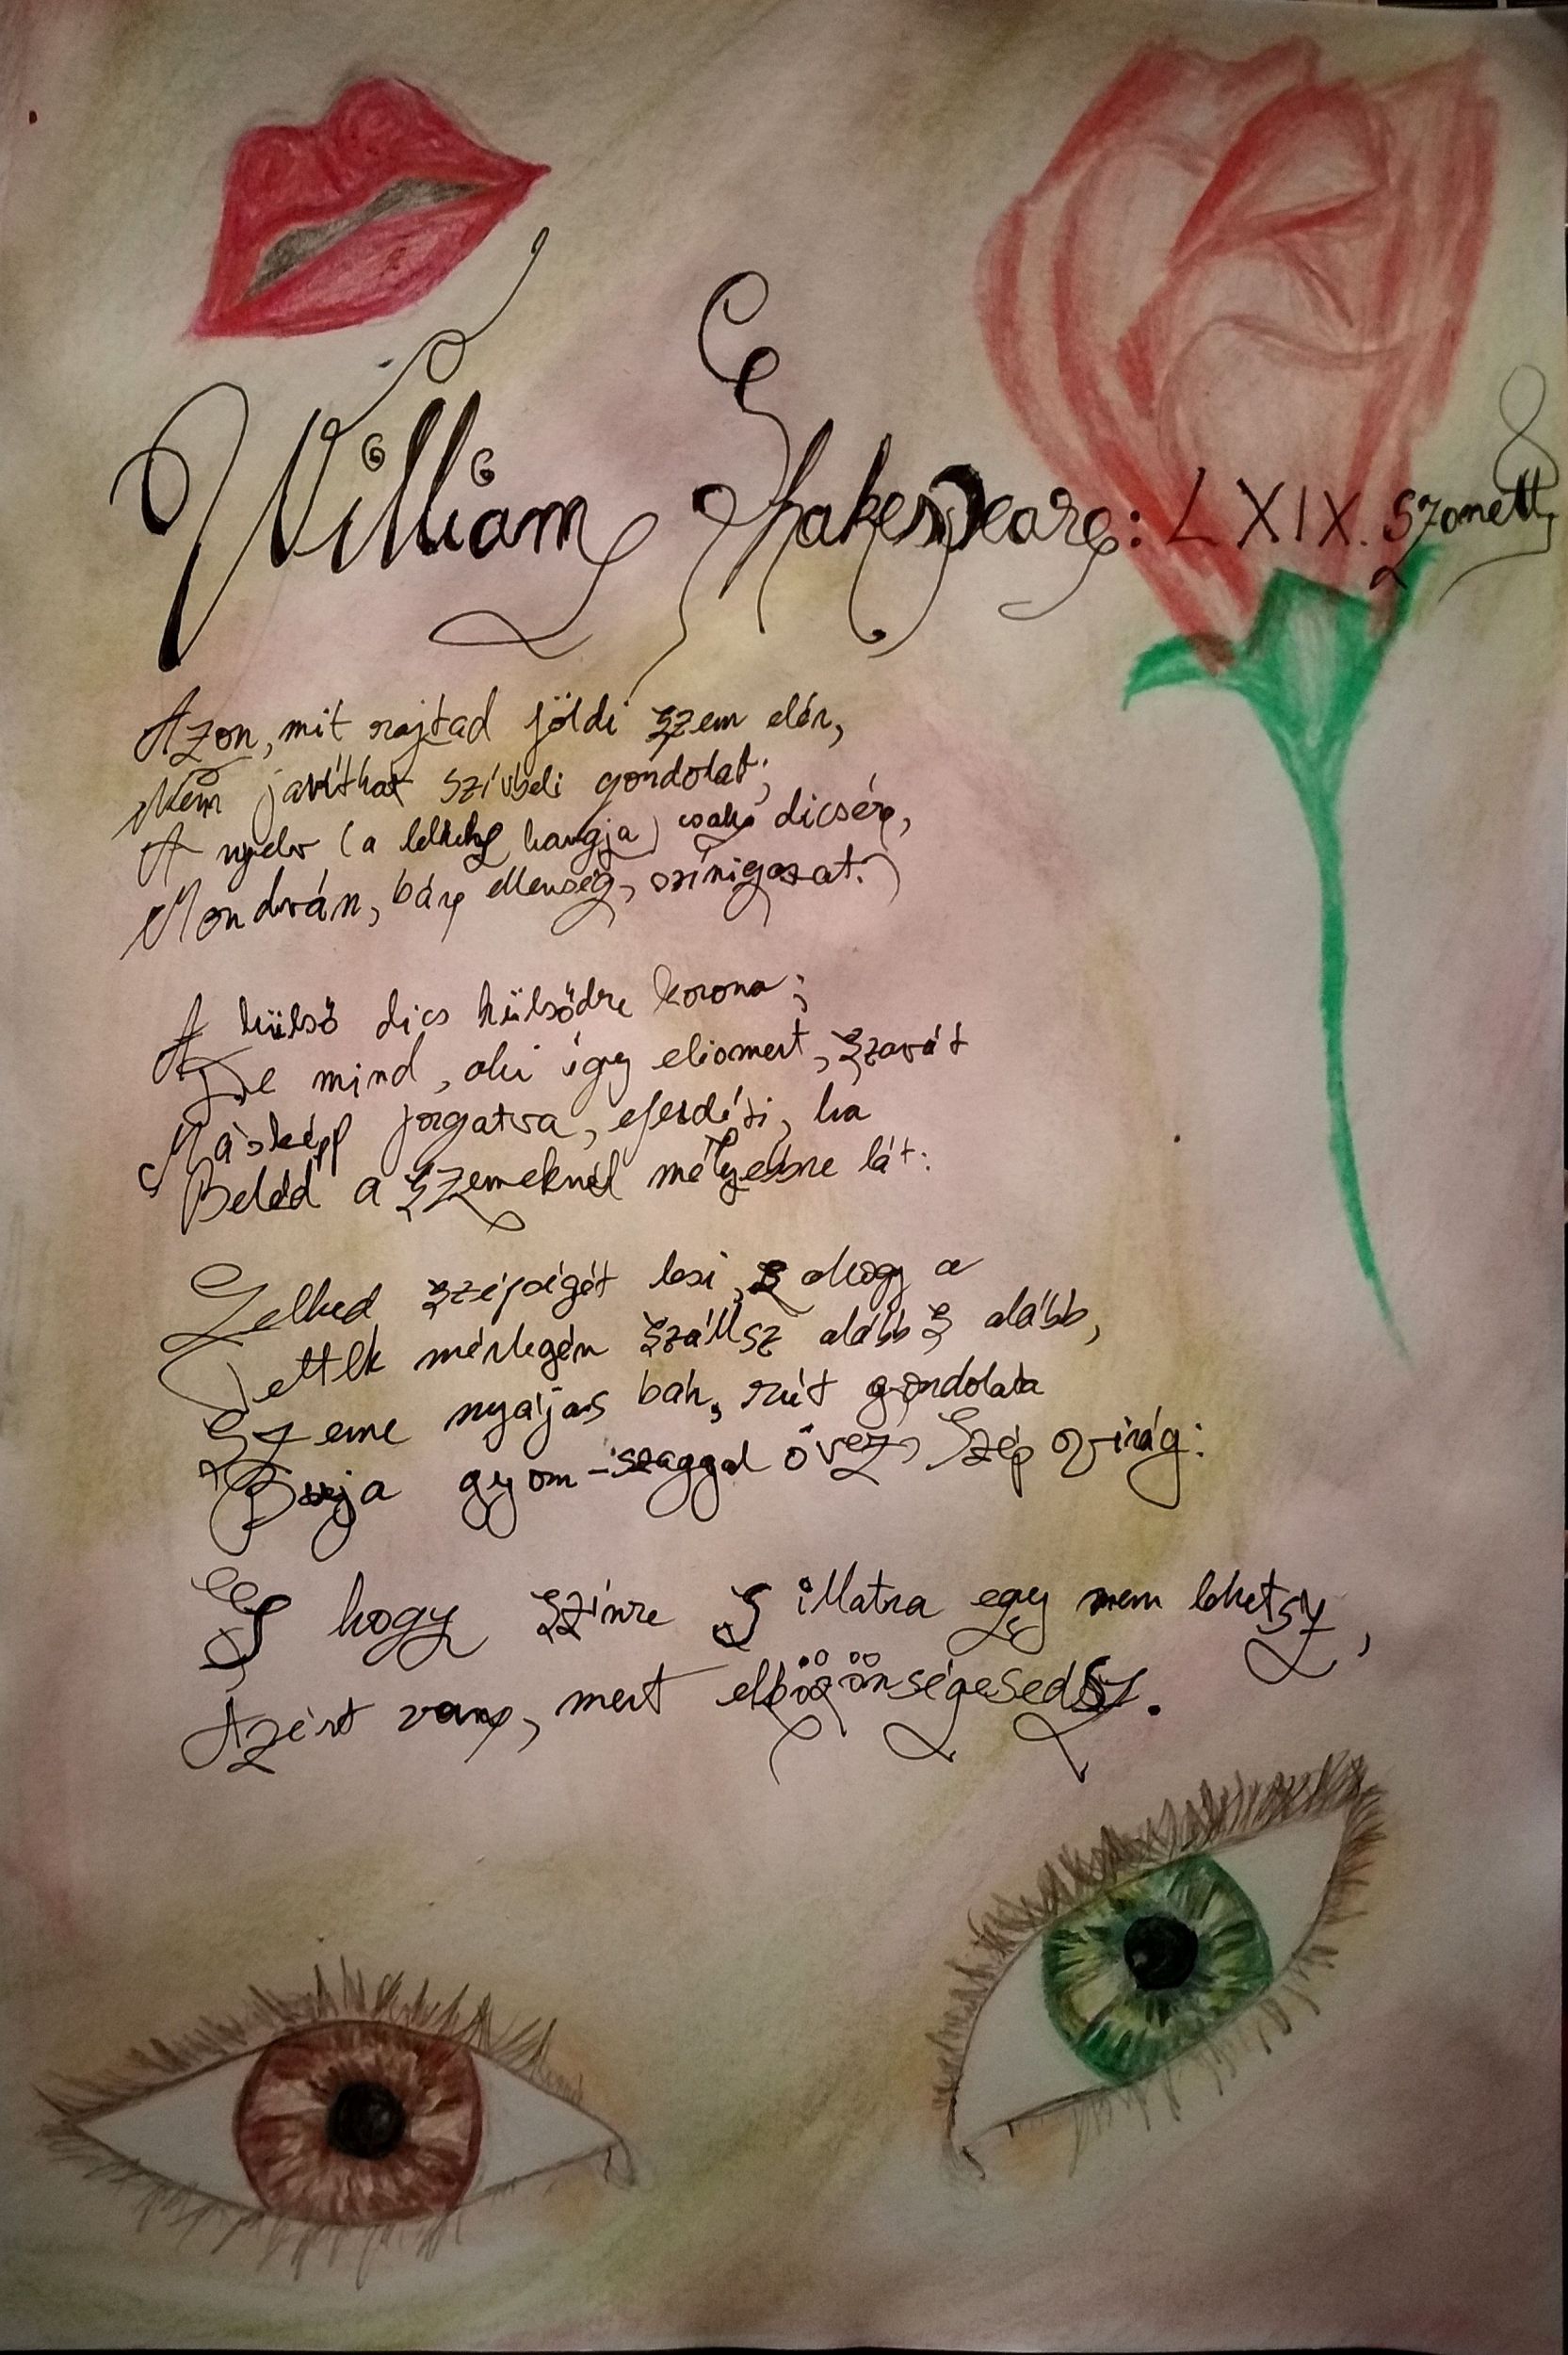 William Shakespeare: LXIX. szonett
Azon, mit rajtad földi szem elér,
Nem javíthat szívbeli gondolat;
A nyelv (a lelkek hangja) csak dicsér,
Mondván, bár ellenség, színigazat.
A külső dics külsődre korona;
De mind, aki így elismert, szavát
Másképp forgatva, elferdíti, ha
Beléd a szemeknél mélyebbre lát:
Lelked szépségét lesi, s ahogy a
Tettek mérlegén szállsz alább s alább,
Szeme nyájas bár, rút gondolata
Buja gyom-szaggal övez, szép virág:
S hogy színre s illatra egy nem lehetsz,
Azért van, mert elközönségesedsz.